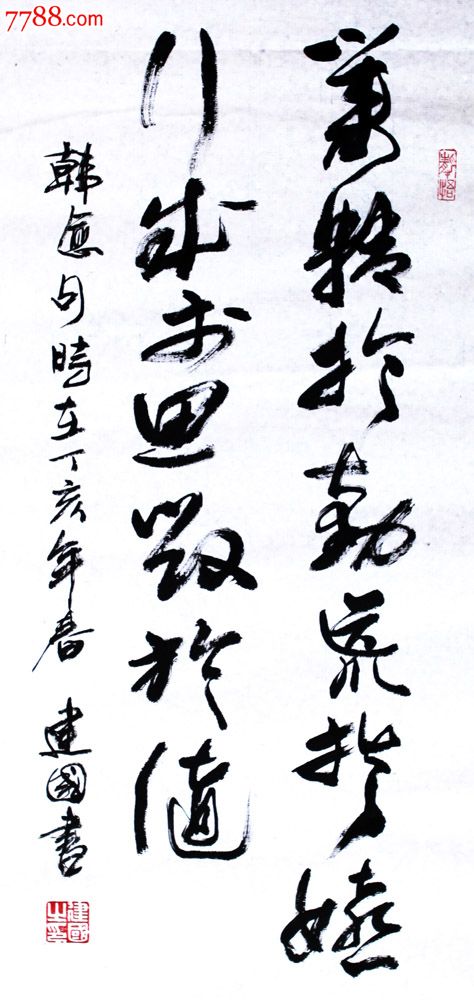 7788.com
業精於勤荒於嬉
行成於思毀於隨
韓愈句時在丁亥年春 建國書
建國之印